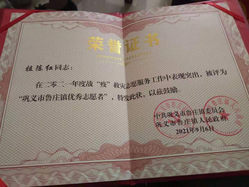 荣誉证书
同志：
在二〇二一年度战“疫”救灾志愿服务工作中表现突出，被评为
“巩义市鲁庄镇优秀志愿者”，特发此状，以兹鼓励。
中共巩义市鲁庄镇委员会
巩义市鲁庄镇人民政府
2021年9月6日